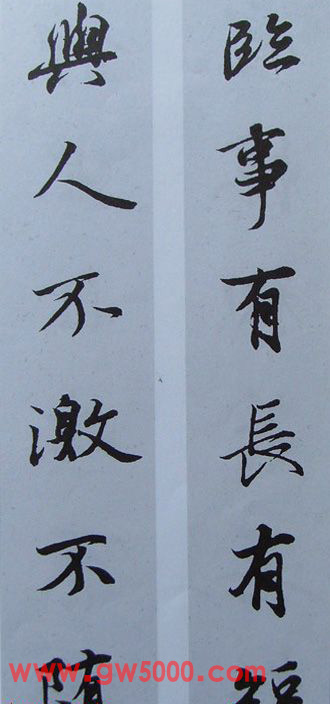 臨事有長有短
與人不激不隨
www.gw5000.com